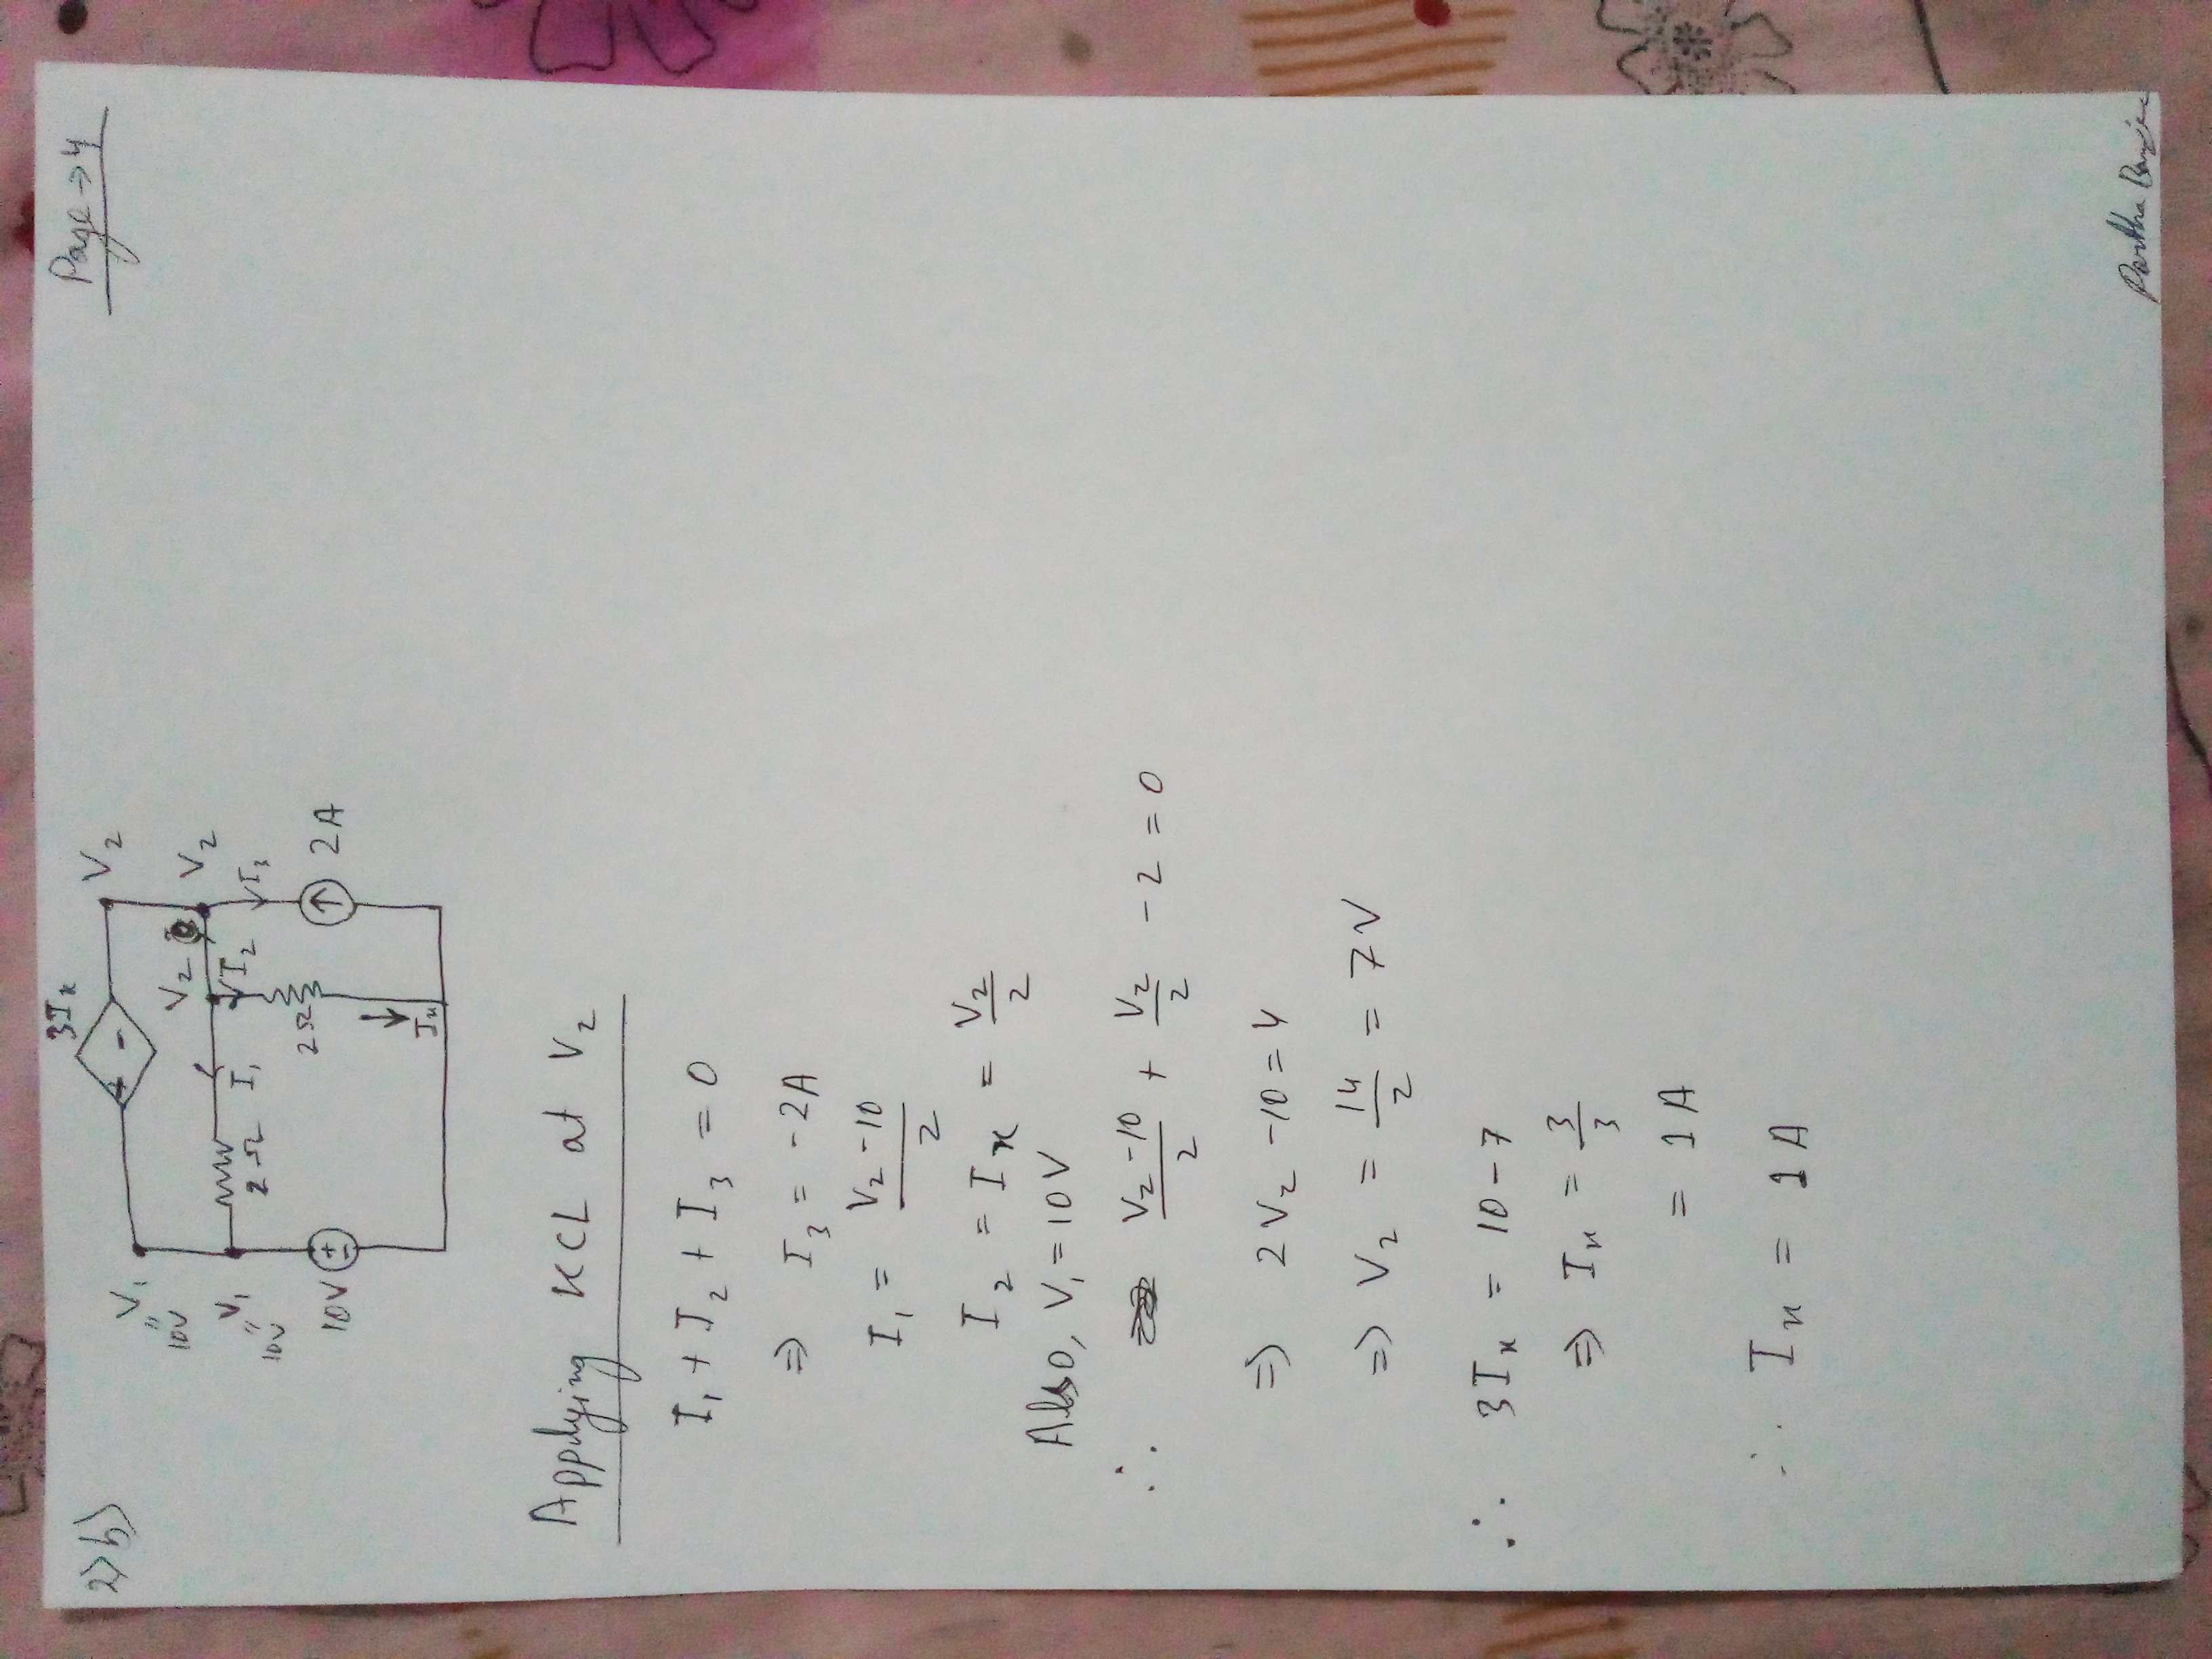 Page → 4
2) b)
3Ix
V1
"
10V
V2
V2
V2
V1
"
10V
2 Ω
I1
I2
I3
2 Ω
10V
+
-
2 A
Ix
Applying KCL at V2
I1 + I2 + I3 = 0
⇒ I3 = -2A
I1 = (V2 - 10)/2
I2 = Ix = V2/2
Also, V1 = 10V
∴ (V2 - 10)/2 + V2/2 - 2 = 0
⇒ 2V2 - 10 = 4
⇒ V2 = 14/2 = 7V
∴ 3Ix = 10 - 7
⇒ Ix = 3/3
= 1 A
∴ Ix = 1 A
Partha